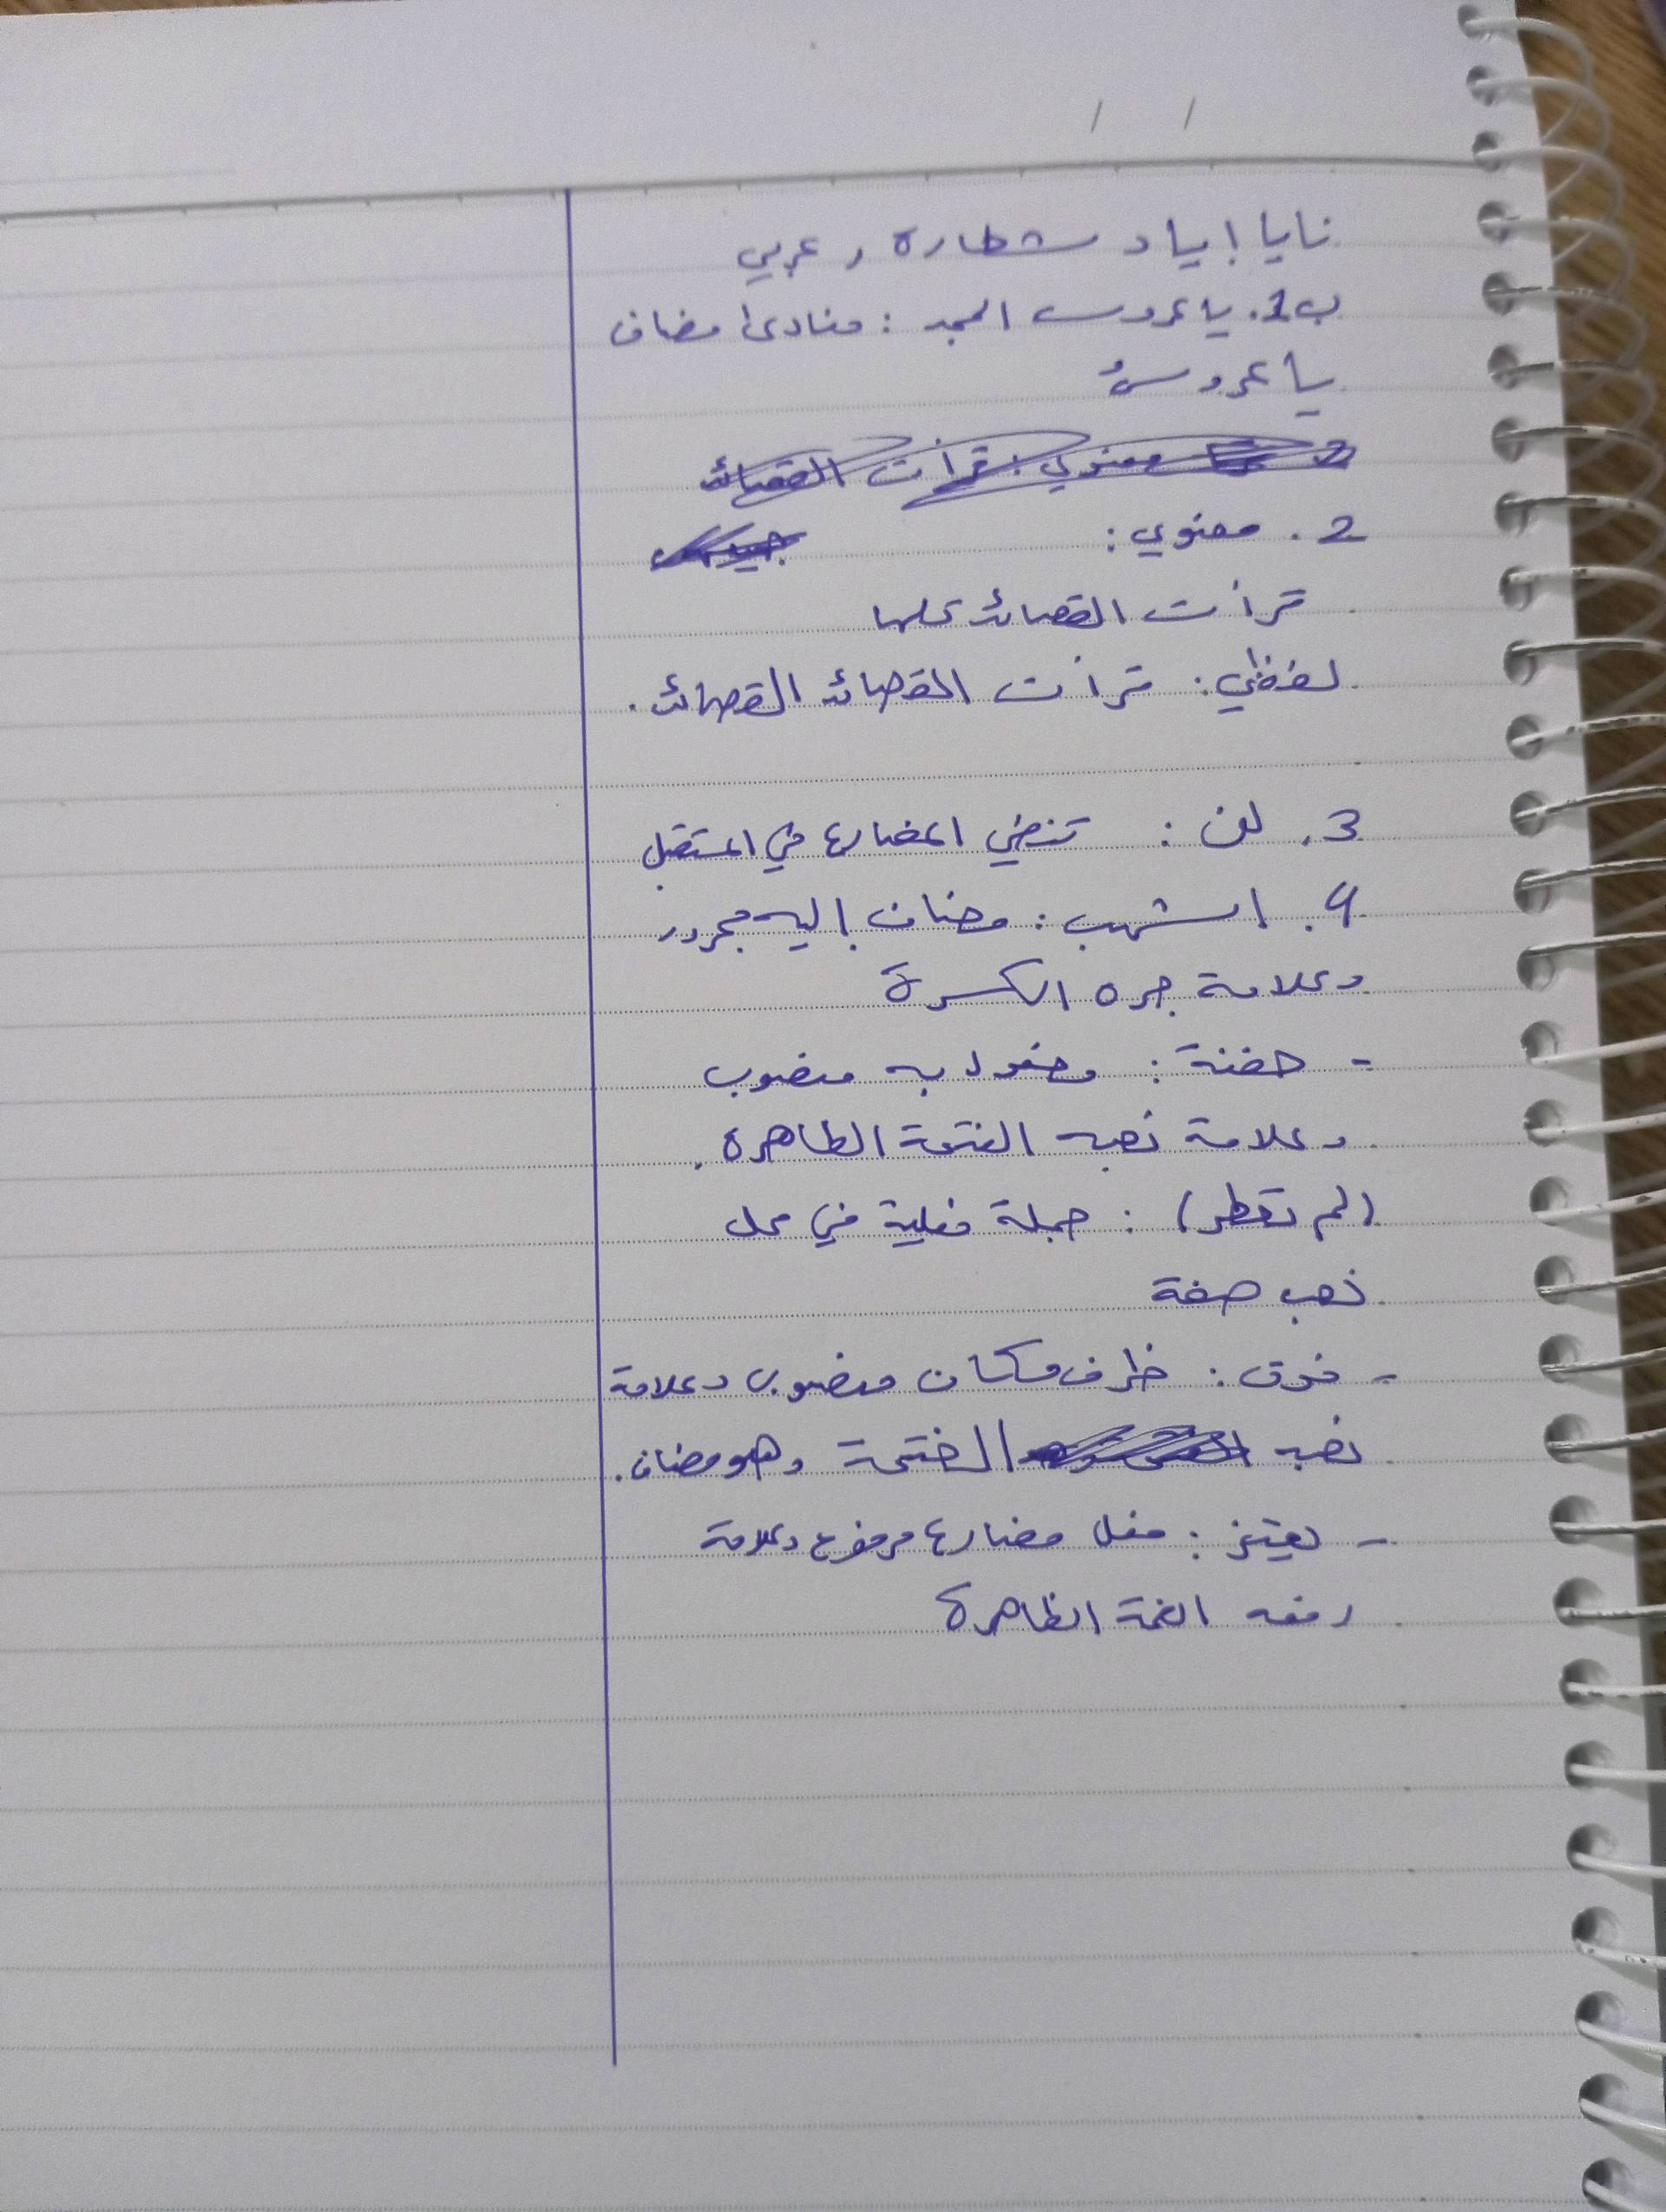 نايا إياد شطاره ر عربي
ب 1. يا عروس المجد : منادى مضاف
يا عروسُ
2 معنوي : قرأت القصائد
2. معنوي :
قرأت القصائد كلها
لفظي : قرأت القصائد القصائد .
3. لن : تنفي المضارع في المستقبل
4. الشهب : مضاف إليه مجرور
وعلامة جره الكسرة
- حفنة : مفعول به منصوب
وعلامة نصبه الفتحة الظاهرة .
(لم تعطر) : جملة فعلية في محل
نصب صفة
- فوق : ظرف مكان منصوب وعلامة
نصبه الفتحة وهو مضاف .
- يعتز : فعل مضارع مرفوع وعلامة
رفعه الضمة الظاهرة